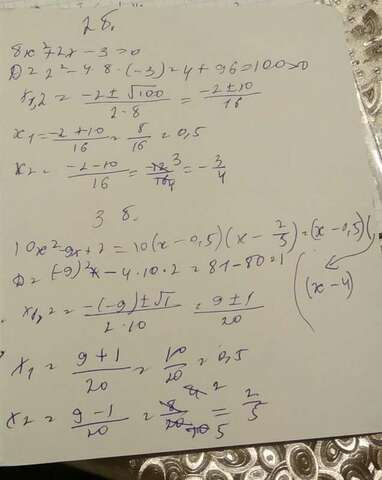 2 б.
8x²+2x-3=0
D=2²-4·8·(-3)=4+96=100>0
x1,2 = (-2±√100)/(2·8) = (-2±10)/16
x1 = (-2+10)/16 = 8/16 = 0,5
x2 = (-2-10)/16 = -12/16 3/4 = -3/4
3 б.
10x²-9x+2=10(x-0,5)(x-2/5)=(x-0,5)(
D=(-9)²-4·10·2=81-80=1
(x-4)
x1,2 = (-(-9)±√1)/(2·10) = (9±1)/20
x1 = (9+1)/20 = 10/20 = 0,5
x2 = (9-1)/20 = 8/20 4/10 2/5 = 2/5